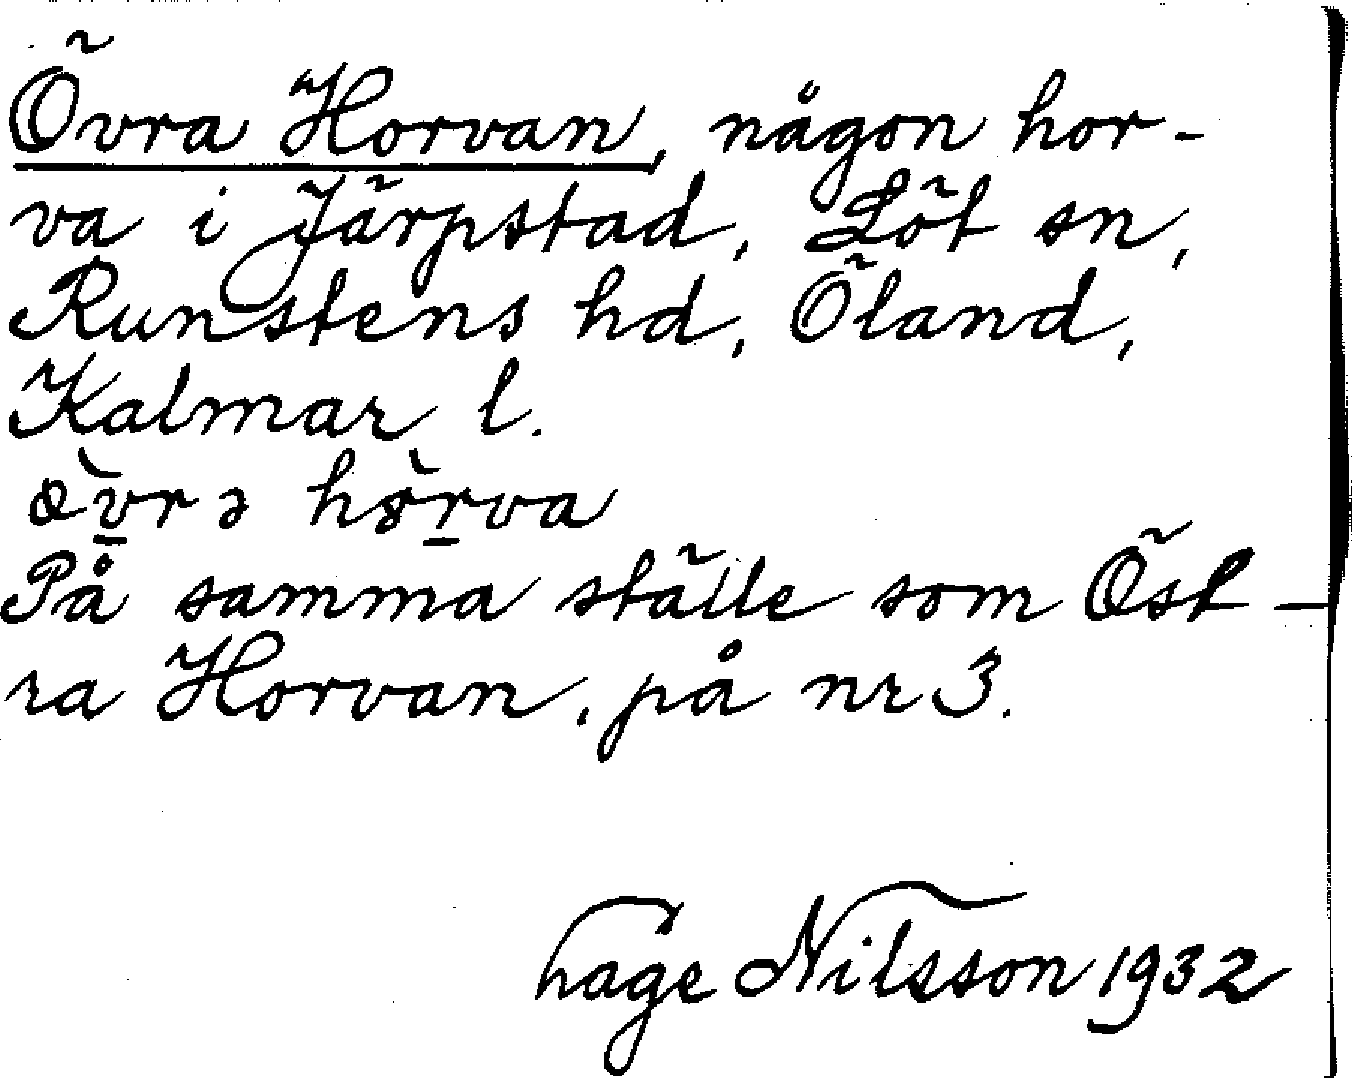 Övra Horvan, någon hor-
va i Järpstad, Löt sn,
Runstens hd, Öland,
Kalmar l.
òv̲rə hòr̲va
På samma ställe som Öst-
ra Horvan, på nr 3.
Hage Nilsson 1932